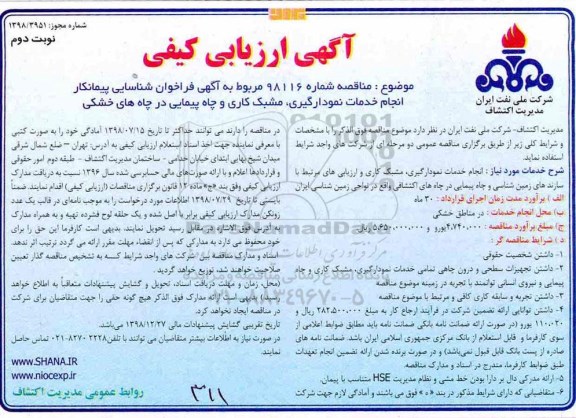 شماره مجوز: ۱۳۹۸/۳۹۵۱
نوبت دوم
آگهی ارزیابی کیفی
شرکت ملی نفت ایران
مدیریت اکتشاف
موضوع : مناقصه شماره ۹۸۱۱۶ مربوط به آگهی فراخوان شناسایی پیمانکار
انجام خدمات نمودارگیری، مشبک کاری و چاه پیمایی در چاه های خشکی
مدیریت اکتشاف- شرکت ملی نفت ایران در نظر دارد موضوع مناقصه فوق الذکر را با مشخصات
و شرایط کلی زیر از طریق برگزاری مناقصه عمومی دو مرحله ای به شرکت های واجد شرایط
استفاده نماید.
شرح خدمات مورد نیاز : انجام خدمات نمودارگیری، مشبک کاری و ارزیابی های مرتبط با
سازند های زمین شناسی و چاه پیمایی در چاه های اکتشافی واقع در نواحی زمین شناسی ایران
الف ) برآورد مدت زمان اجرای قرارداد : ۳۰ ماه
ب) محل انجام خدمات : در مناطق خشکی
ج) مبلغ برآورد مناقصه : ۴،۷۴۰،۰۰۰یورو و ۵،۶۵۰،۰۰۰،۰۰۰ ریال
د ) شرایط مناقصه گر :
۱- داشتن شخصیت حقوقی
۲- داشتن تجهیزات سطحی و درون چاهی تمامی خدمات نمودارگیری، مشبک کاری و چاه
پیمایی و نیروی انسانی توانمند با تجربه در زمینه موضوع مناقصه
۳- داشتن تجربه و سابقه کاری کافی و مرتبط با موضوع مناقصه
۴- داشتن توانایی ارائه تضمین شرکت در فرآیند ارجاع کار به مبلغ ۲۸۲،۵۰۰،۰۰۰ ریال و
یورو (در صورت ارائه ضمانت نامه بانکی ضمانت نامه باید مطابق ضوابط اعلامی از
سوی کارفرما و قابل استعلام از بانک مرکزی جمهوری اسلامی ایران باشد. ضمانت نامه های
صادره از پست بانک قابل قبول نمی‌باشد) و در صورت برنده شدن ارائه تضمین انجام تعهدات
طبق ضوابط کارفرما، مندرج در اسناد و مدارک مناقصه.
۵- ارائه مدرکی دال بر دارا بودن خط مشی و نظام مدیریت HSE متناسب با پیمان.
۶- متقاضیانی که دارای شرایط مذکور در بند « د » فوق می باشند و آمادگی لازم جهت شرکت
در مناقصه را دارند می توانند حداکثر تا تاریخ ۱۳۹۸/۰۷/۱۵ آمادگی خود را به صورت کتبی
با معرفی نماینده جهت اخذ اسناد استعلام ارزیابی کیفی به آدرس: تهران – ضلع شمال شرقی
میدان شیخ بهایی ابتدای خیابان خدامی - ساختمان مدیریت اکتشاف - طبقه دوم امور حقوقی
و قراردادها اعلام و با ارائه صورت‌های مالی حسابرسی شده سال ۱۳۹۶ نسبت به دریافت مدارک
ارزیابی کیفی وفق بند «ج» ماده ۱۲ قانون برگزاری مناقصات (ارزیابی کیفی) اقدام نمایند. ضمناً
بایستی تا تاریخ ۱۳۹۸/۰۷/۲۹ اطلاعات مورد درخواست را به موجب نامه‌ای در قالب یک عدد
زونکن مدارک ارزیابی کیفی برابر با اصل شده و یک حلقه لوح فشرده، تهیه و به همراه مدارک
به آدرس فوق رسید تحویل نمایند. بدیهی است کارفرما این حق را برای
خود محفوظ می دارد به مدارکی که پس از انقضاء مهلت مقرر ارائه می گردد ترتیب اثر ندهد.
اسناد و مدارک مناقصه بین شرکت های واجد شرایط که به تشخیص مناقصه گذار تعیین
صلاحیت خواهند شد، توزیع خواهد گردید.
(محل، زمان و مهلت دریافت اسناد، تحویل و گشایش پیشنهادات متعاقباً به اطلاع خواهد
رسید) بدیهی است ارائه مدارک فوق الذکر هیچ گونه حقی را جهت متقاضیان برای شرکت
در مناقصه ایجاد نخواهد کرد.
تاریخ تقریبی گشایش پیشنهادات مالی ۱۳۹۸/۱۲/۲۷ می‌باشد.
در صورت نیاز به اطلاعات بیشتر متقاضیان می توانند با تلفن ۸۲۷۰۲۲۲۸-۰۲۱ تماس حاصل
نمایند.
WWW.SHANA.IR
www.niocexp.ir
روابط عمومی مدیریت اکتشاف